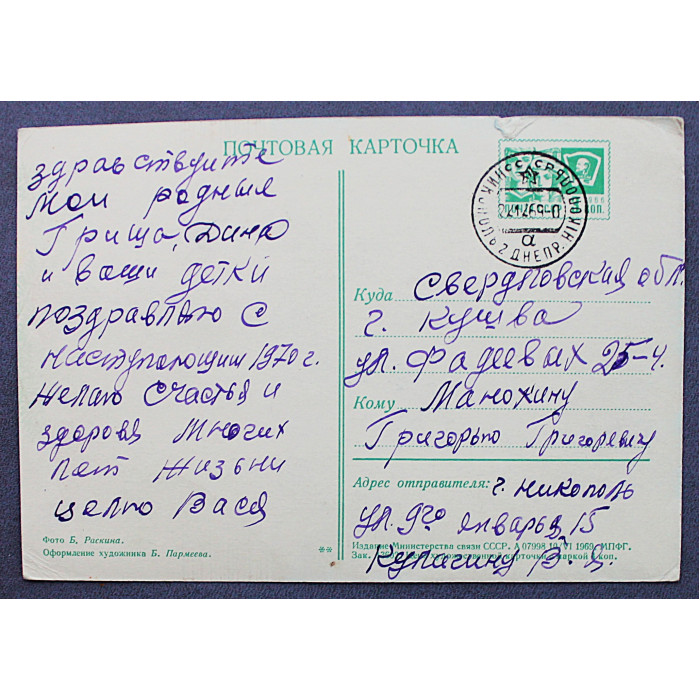 ПОЧТОВАЯ КАРТОЧКА
здравствуйте
мои родные
Гриша, Дина
и ваши детки
поздравляю с
наступающим 1970 г.
желаю счастья и
здоровя Многих
лет жизьни
целую Вася
Фото Б. Раскина.
Оформление художника Б. Пармеева.
**
НИКОПОЛЬ 2 ДНЕПР.
а
Куда Свердловская обл.
г. Кушва
ул. Фадеевых 25-4.
Кому Манохину
Григорью Григоревичу
Адрес отправителя: г. Никополь
ул. 9го январья, 15
Издание Министерства связи СССР. А 07998 10/VI 1969. МПФГ.
Кулагину В. Я.